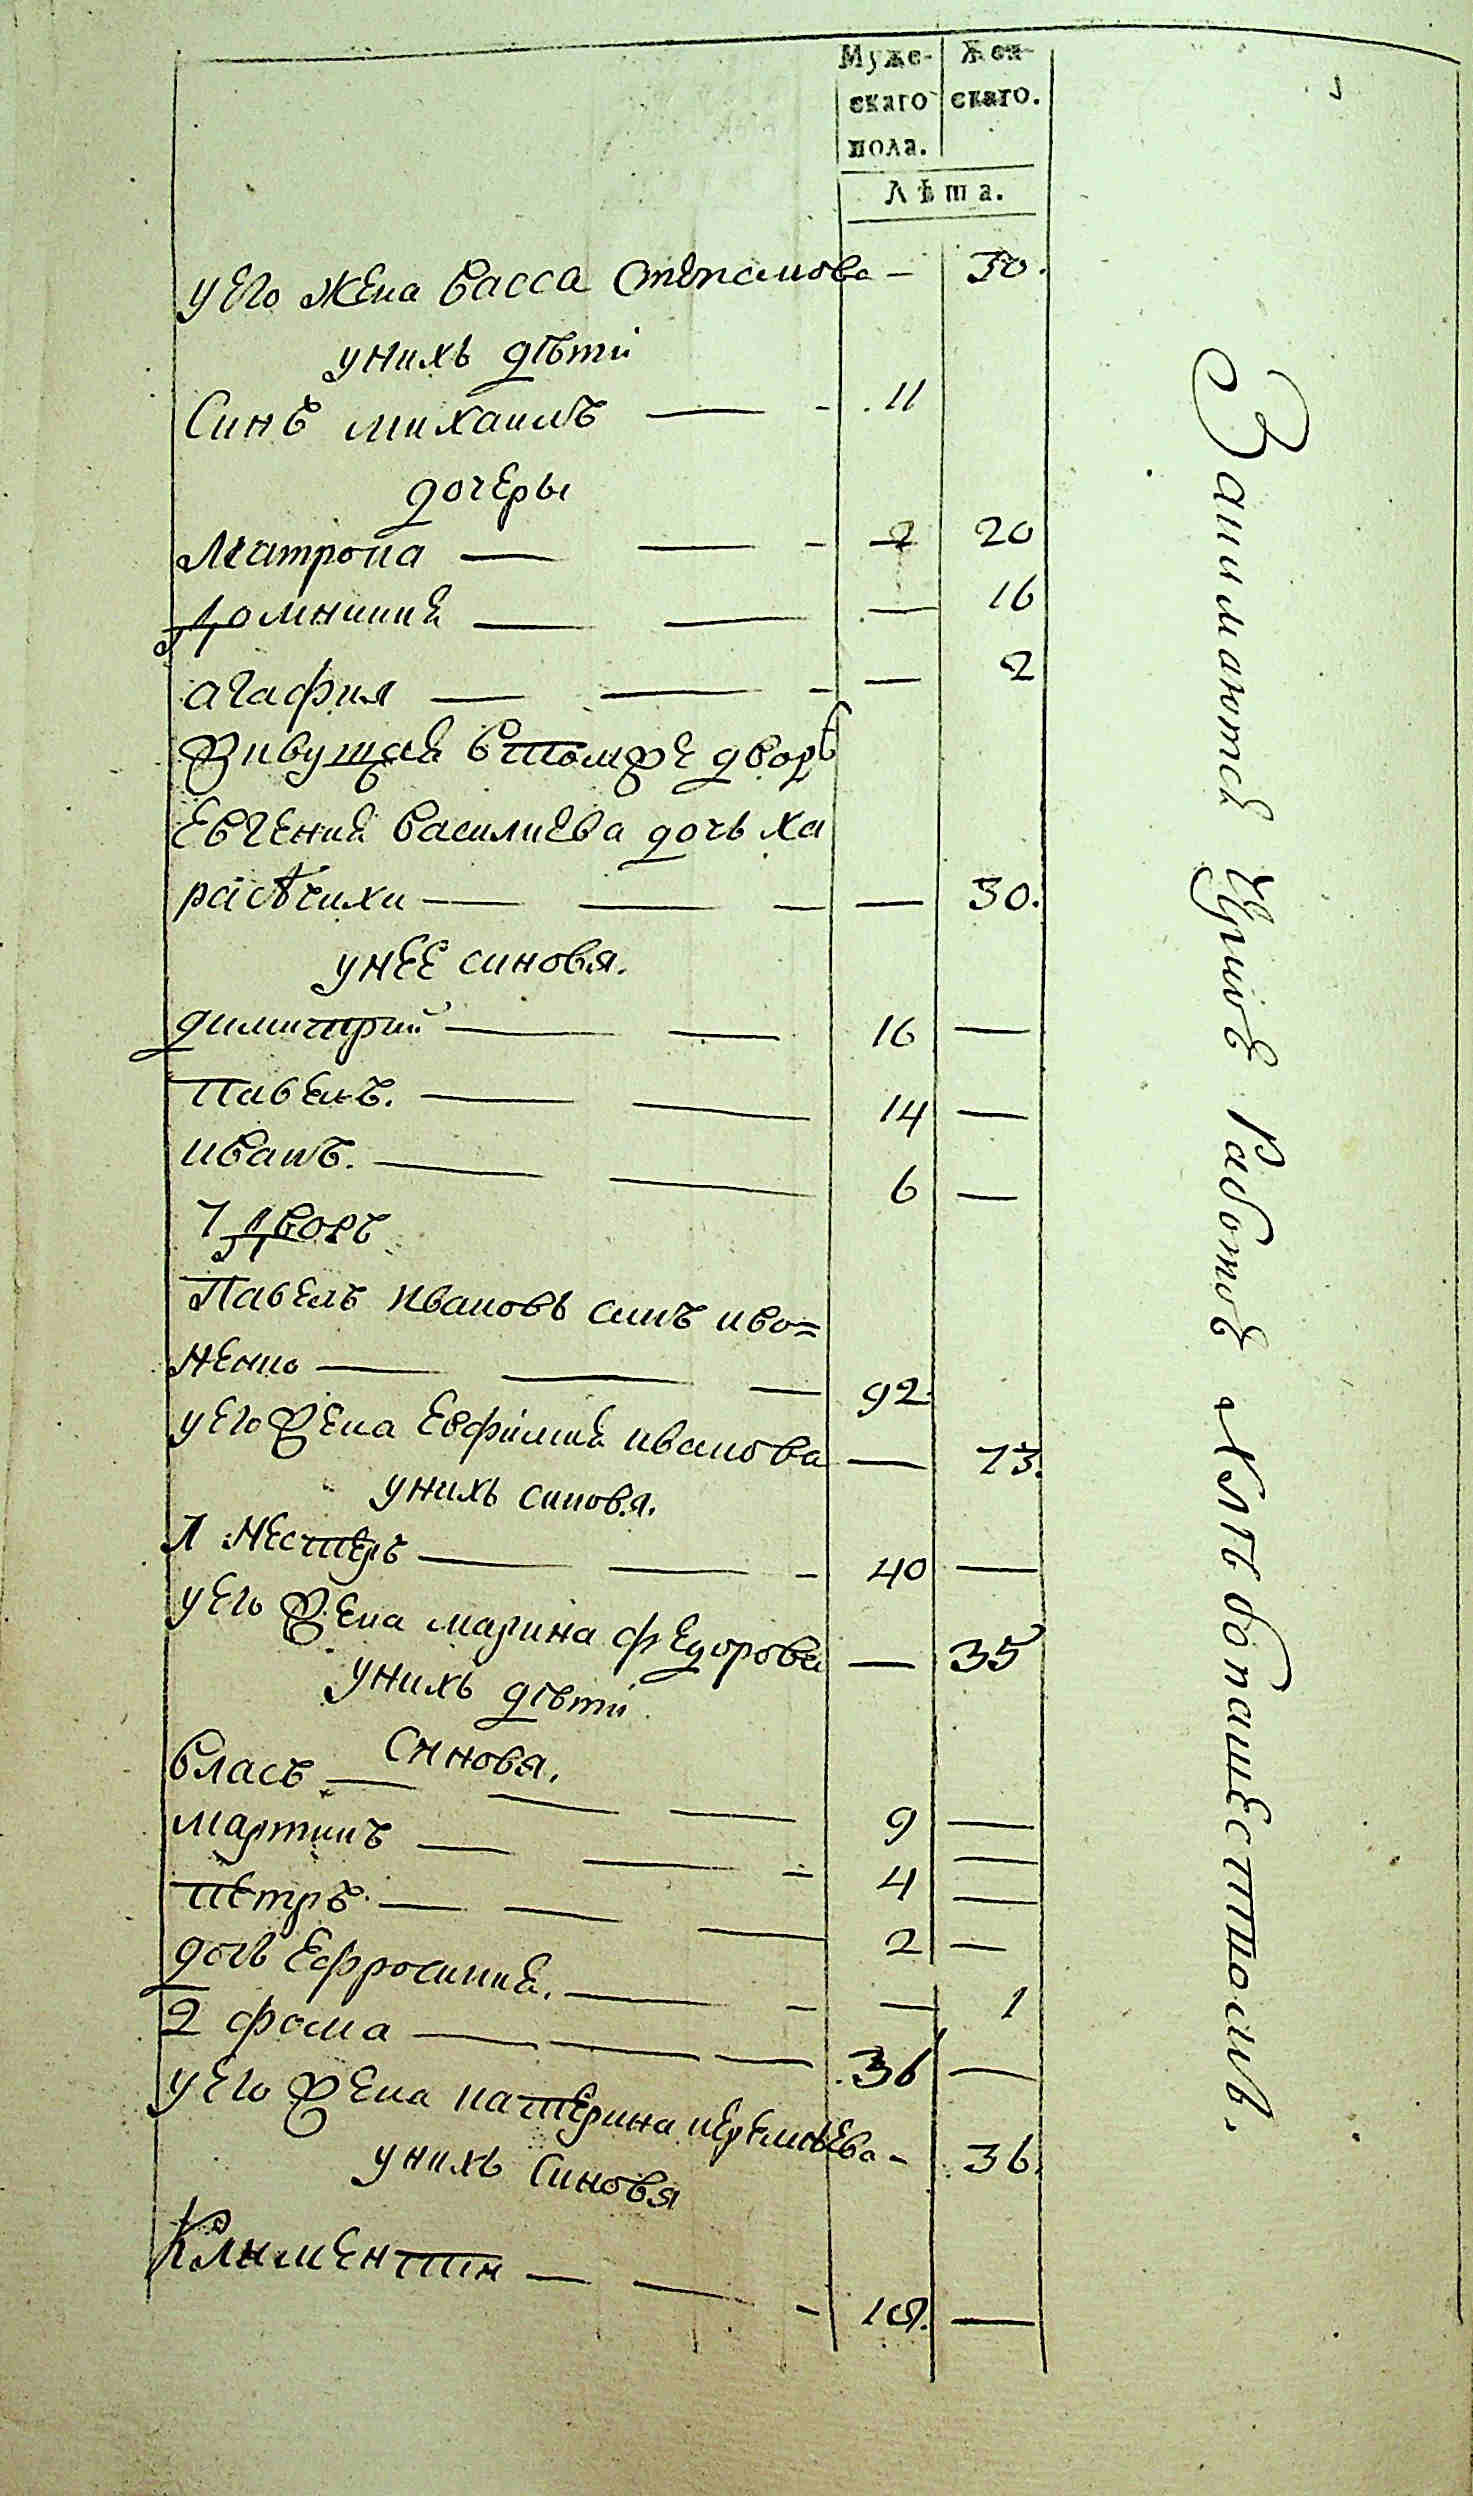 Муже- Жен-
скаго скаго.
пола.
Лѣта.
уего жена васса степанова - 30.
унихъ дѣти
Синъ михаилъ — - 11
дочеры
Матрона — — - 20
Домникия — — — 16
агафия — — - — 2
Живущая втомже дворѣ
Евгения василиева дочь ха
— — - — 30.
унее синовя.
димитрий — — 16 —
Павелъ. — — 14 —
иванъ. — — 6 —
7 дворъ
Павелъ ивановъ синъ иво=
ненко — — — 92
уего жена Евфимия иванова — 73.
унихъ синовя.
1 Нестеръ — — - 40 —
уего жена марина федорова — 35
унихъ дѣти
Синовя.
власъ — — — 9 —
мартинъ — — - 4 —
Петръ — — — 2 —
дочь Ефросиния. — - — 1
2 фома — — — 36 —
уего жена катерина - 36.
унихъ синовя
Климентии — — - 18. —
Занимаются Чрезъ работъ хлѣбопашествомъ.